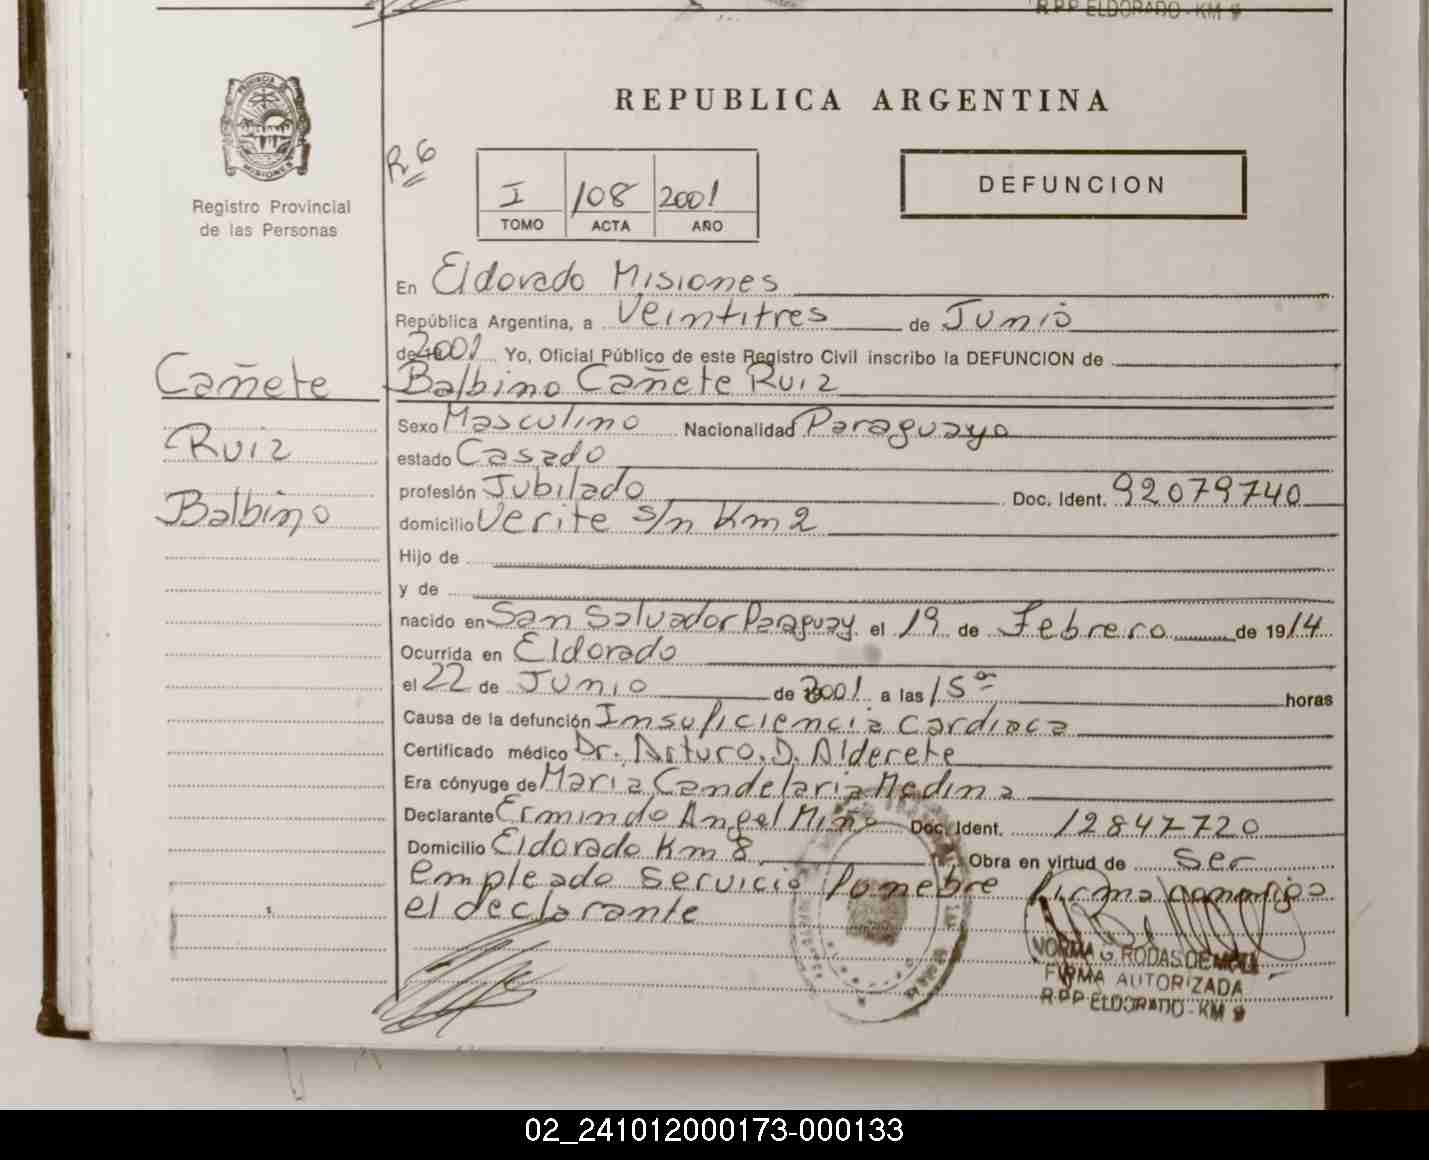 R.P.P. ELDORADO - KM 9
PROVINCIA DE MISIONES
Registro Provincial
de las Personas
REPUBLICA ARGENTINA
R 6
I 108 2001
TOMO ACTA AÑO
DEFUNCION
En Eldorado Misiones
República Argentina, a Veintitres de Junio
de 2001 Yo, Oficial Público de este Registro Civil inscribo la DEFUNCION de
Cañete
Ruiz
Balbino
Balbino Cañete Ruiz
Sexo Masculino Nacionalidad Paraguayo
estado Casado
profesión Jubilado Doc. Ident. 92079740
domicilio Verite s/n Km 2
Hijo de
y de
nacido en San Salvador Paraguay el 19 de Febrero de 1914
Ocurrida en Eldorado
el 22 de Junio de 2001 a las 15 horas
Causa de la defunción Insuficiencia Cardiaca
Certificado médico Dr. Arturo. D. Alderete
Era cónyuge de Maria Candelaria Medina
Declarante Ermindo Angel Miño Doc. Ident. 12847720
Domicilio Eldorado Km 8 Obra en virtud de ser
empleado servicio funebre firma conmigo
el declarante
NORMA G. RODAS DE
FIRMA AUTORIZADA
R.P.P. ELDORADO - KM 9
02_241012000173-000133